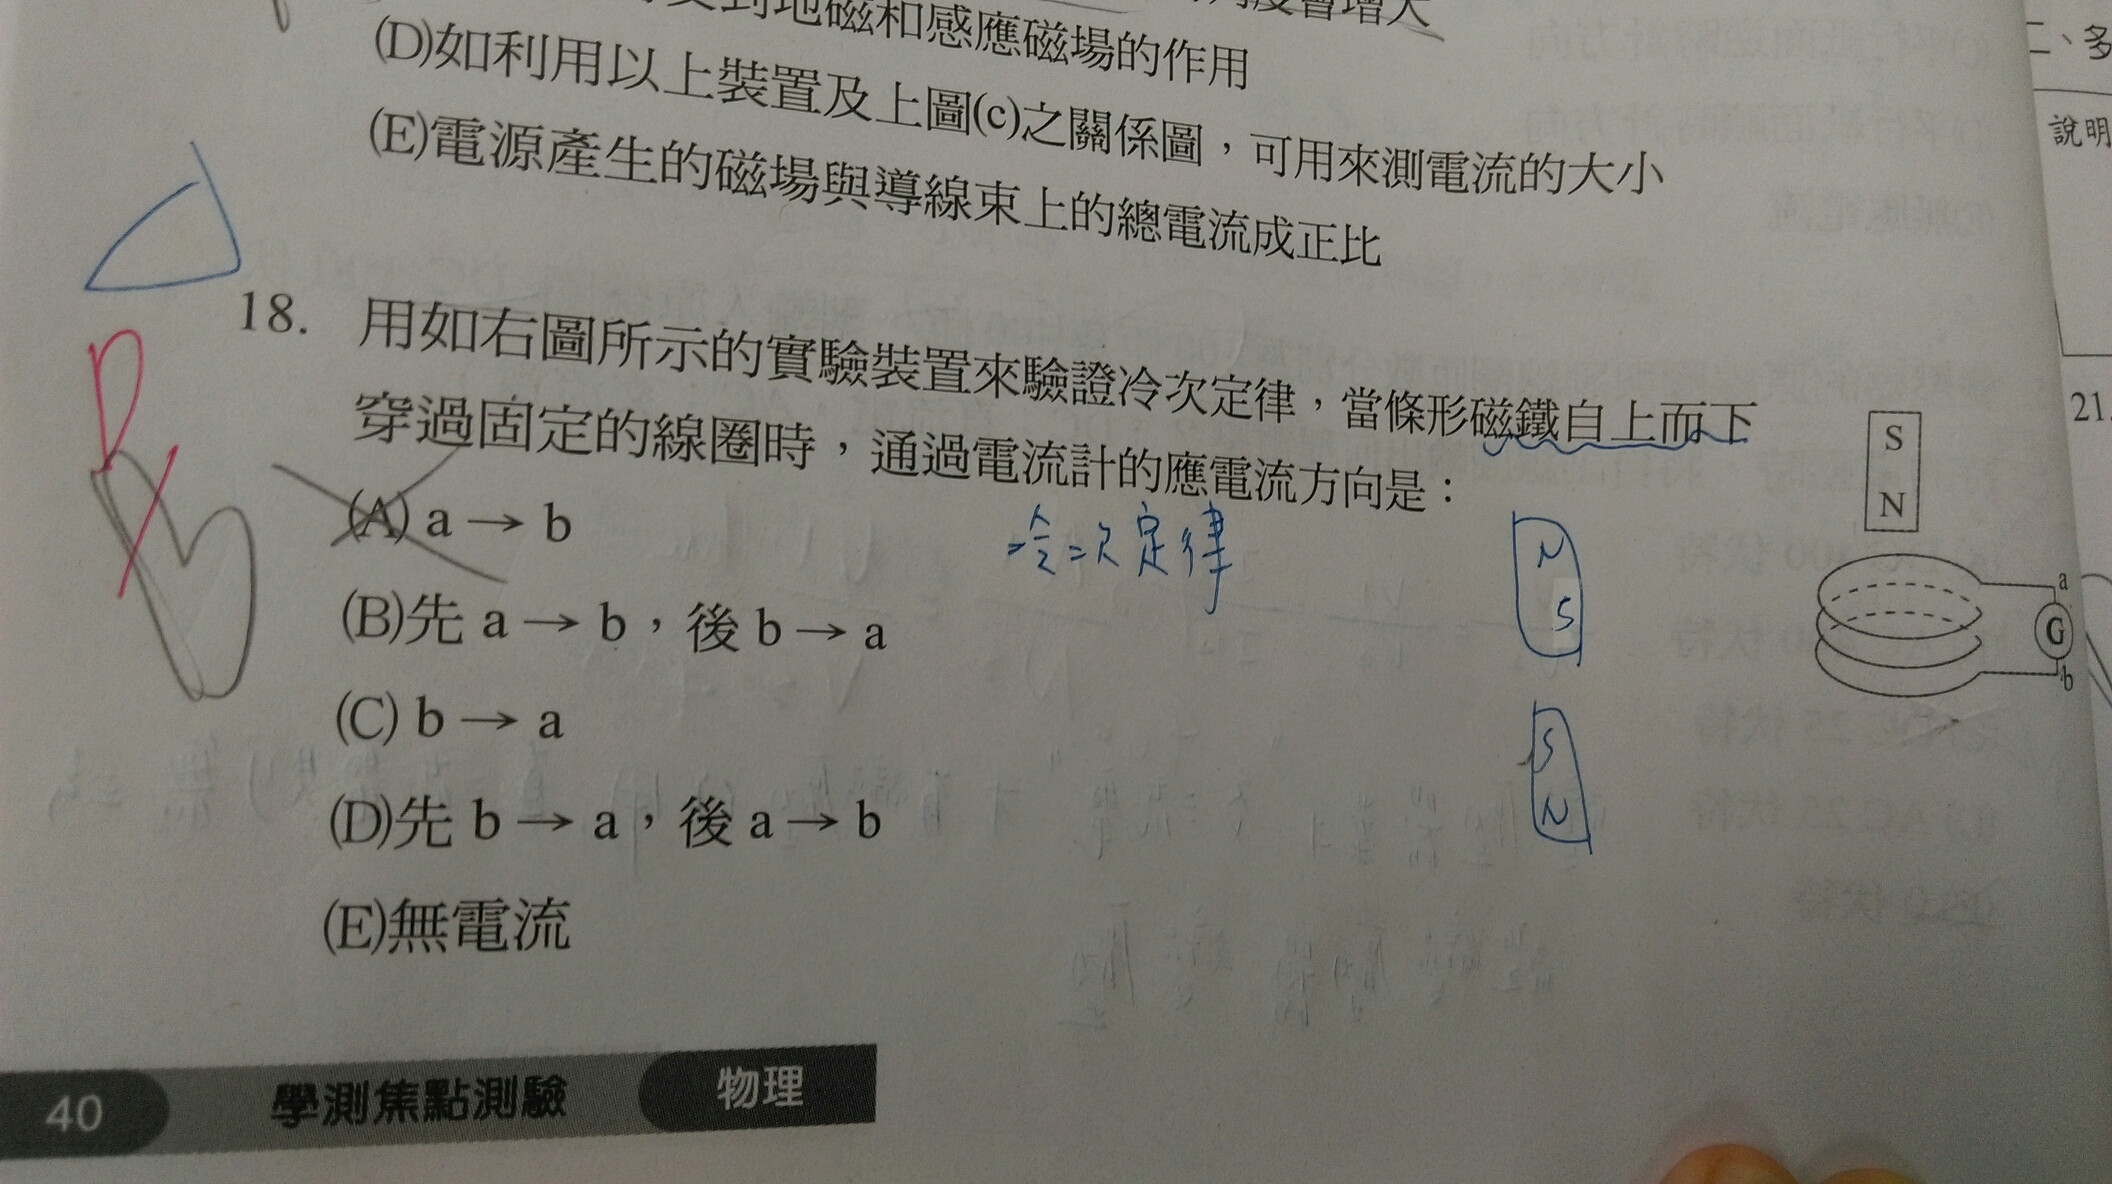 到地磁和感應磁場的作用
(D)如利用以上裝置及上圖(c)之關係圖，可用來測電流的大小
(E)電源產生的磁場與導線束上的總電流成正比
18. 用如右圖所示的實驗裝置來驗證冷次定律，當條形磁鐵自上而下
穿過固定的線圈時，通過電流計的應電流方向是：
(A) a → b
冷次定律
(B)先 a → b，後 b → a
(C) b → a
(D)先 b → a，後 a → b
(E)無電流
N
S
S
N
S
N
a
G
b
二、多
說明
21.
40 學測焦點測驗 物理